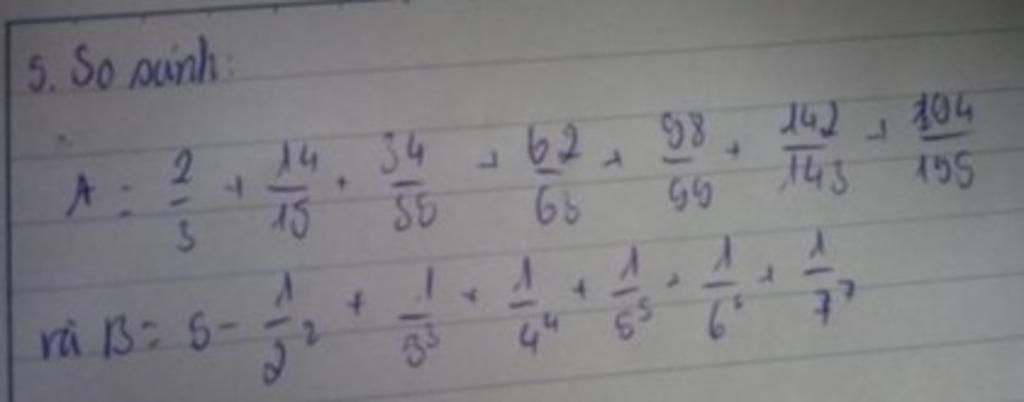 5. So sánh:
A = 2/3 + 14/15 + 34/35 + 62/63 + 98/99 + 142/143 + 194/195
và B = 5 - 1/2² + 1/3³ + 1/4⁴ + 1/5⁵ + 1/6⁶ + 1/7⁷